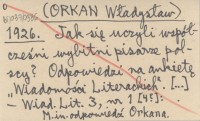 (ORKAN Władysław)
1926. Jak się uczyli współ-
cześni wybitni pisarze pol-
scy? Odpowiedzi na ankietę
"Wiadomości Literackich". [...]
- Wiad. Lit. 3, nr 1 [45]:
M.in. odpowiedź Orkana.